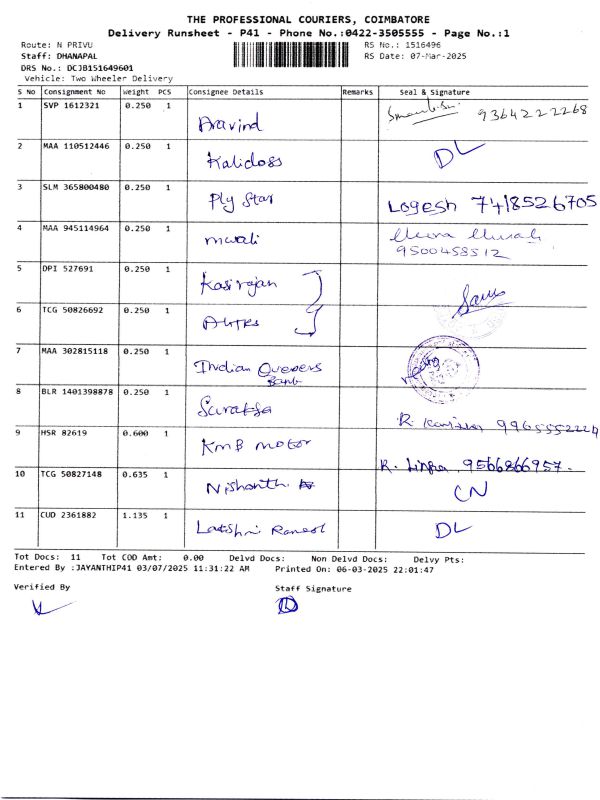 THE PROFESSIONAL COURIERS, COIMBATORE
Delivery Runsheet - P41 - Phone No.:0422-3505555 - Page No.:1
Route: N PRIVU RS No.: 1516496
Staff: DHANAPAL RS Date: 07-Mar-2025
DRS No.: DCJB151649601
Vehicle: Two Wheeler Delivery
S No Consignment No Weight PCS Consignee Details Remarks Seal & Signature
1 SVP 1612321 0.250 1 Aravind 9364222268
2 MAA 110512446 0.250 1 Kalidoss DL
3 SLM 365800480 0.250 1 Ply Star Logesh 7418526705
4 MAA 945114964 0.250 1 murali 9500458512
5 DPI 527691 0.250 1 Kasirajan
6 TCG 50826692 0.250 1
7 MAA 302815118 0.250 1 Indian Overers Bank
8 BLR 1401398878 0.250 1 R. 9965552224
9 HSR 82619 0.600 1 KMB motor R. 9566866957.
10 TCG 50827148 0.635 1 Nishanth CN
11 CUD 2361882 1.135 1 DL
Tot Docs: 11 Tot COD Amt: 0.00 Delvd Docs: Non Delvd Docs: Delvy Pts:
Entered By :JAYANTHIP41 03/07/2025 11:31:22 AM Printed On: 06-03-2025 22:01:47
Verified By Staff Signature